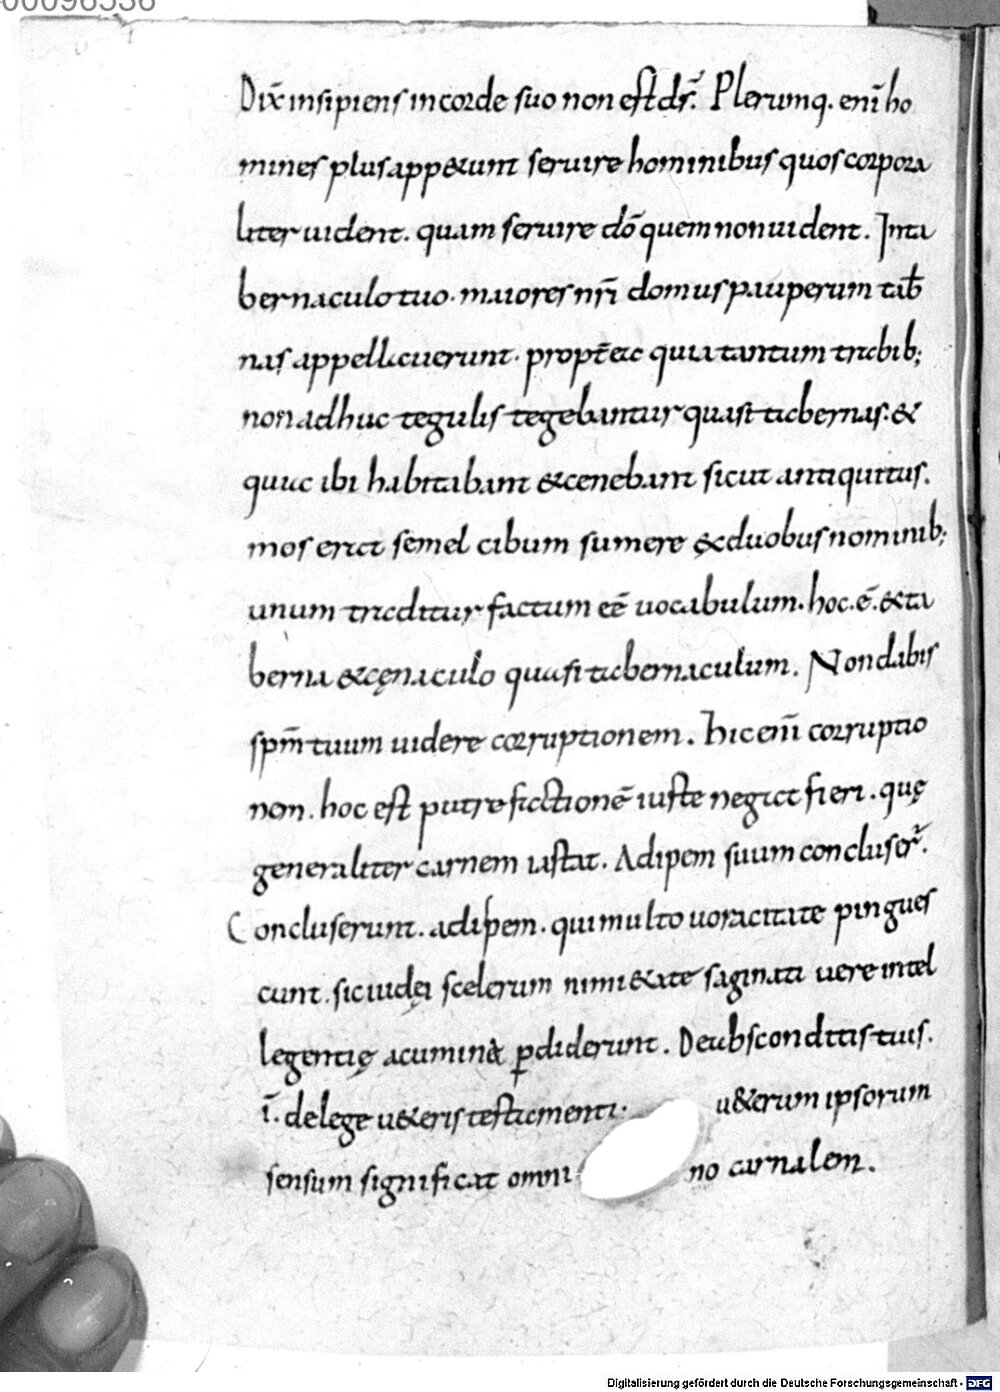 00096536
Dix̄ insipiens in corde suo non est ds̄. Plerumq. enī ho
mines plus appetunt seruire hominibus quos corpora
liter uident. quam seruire dō quem non uident. In ta
bernaculo tuo. maiores nr̄i domus pauperum tab̄
nas appellauerunt. propt̄ea quia tantum trabib;
non adhuc tegulis tegebantur quasi tabernas. &
quia ibi habitabant & cenebant sicut antiquitus.
mos erat semel cibum sumere & duobus nominib;
unum traditur factum eē uocabulum. hoc. ē. & ta
berna & cęnaculo quasi tabernaculum. Non dabis
sp̄m tuum uidere corruptionem. hic enī corruptio
non. hoc est putrefactionē iuste negat fieri. quę
generaliter carnem uastat. Adipem suum concluser̄.
Concluserunt. adipem. qui multo uoracitate pingues
cunt. sic iudęi scelerum nimietate saginati uere intel
legentię acumina ꝑdiderunt. De absconditis tuis.
ī. de lege ueteris testamenti. ueterum ipsorum
sensum significat omni no carnalem.
Digitalisierung gefördert durch die Deutsche Forschungsgemeinschaft - DFG